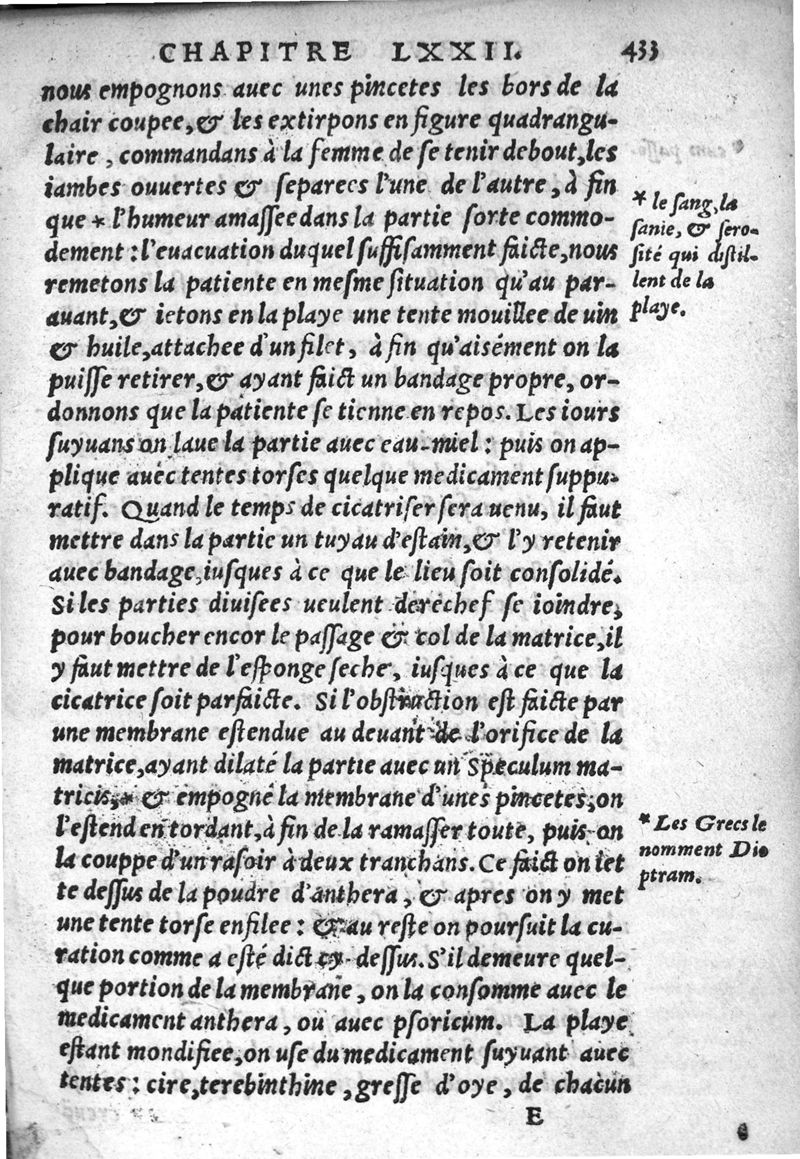 CHAPITRE LXXII. 433
nous empognons auec unes pincetes les bors de la
chair coupee, & les extirpons en figure quadrangu-
laire, commandans à la femme de se tenir debout, les
iambes ouuertes & separees l'une de l'autre, à fin
que * l'humeur amassee dans la partie sorte commo-
dement : l'euacuation duquel suffisamment faicte, nous
remetons la patiente en mesme situation qu'au par-
auant, & ietons en la playe une tente mouillee de uin
& huile, attachee d'un filet, à fin qu'aisément on la
puisse retirer, & ayant faict un bandage propre, or-
donnons que la patiente se tienne en repos. Les iours
suyuans on laue la partie auec eau-miel : puis on ap-
plique auec tentes torses quelque medicament suppu-
ratif. Quand le temps de cicatriser sera uenu, il faut
mettre dans la partie un tuyau d'estain, & l'y retenir
auec bandage, iusques à ce que le lieu soit consolidé.
Si les parties diuisees ueulent derechef se ioindre,
pour boucher encor le passage & col de la matrice, il
y faut mettre de l'esponge seche, iusques à ce que la
cicatrice soit parfaicte. Si l'obstruction est faicte par
une membrane estendue au deuant de l'orifice de la
matrice, ayant dilaté la partie auec un Speculum ma-
tricis, * & empogné la membrane d'unes pincetes, on
l'estend en tordant, à fin de la ramasser toute, puis on
la couppe d'un rasoir à deux tranchans. Ce faict on iet
te dessus de la poudre d'anthera, & apres on y met
une tente torse enfilee : & au reste on poursuit la cu-
ration comme a esté dict cy dessus. S'il demeure quel-
que portion de la membrane, on la consomme auec le
medicament anthera, ou auec psoricum. La playe
estant mondifiee, on use du medicament suyuant auec
tentes : cire, terebinthine, gresse d'oye, de chacun
E
* le sang, la
sanie, & sero-
sité qui distil-
lent de la
playe.
* Les Grecs le
nomment Dio
ptram.